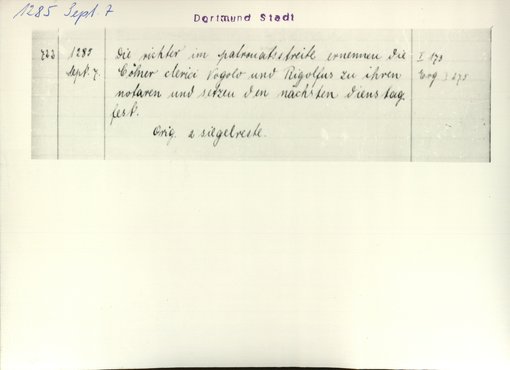 1285 Sept. 7
Dortmund Stadt
1285 Die richter im patronatsstreite ernennen die I 173
Sept. 7. Cölner clerici Vogolo und Rigolfus zu ihren Erg I 275
notaren und setzen den nächsten dienstag
fest.
Orig. 2 siegelreste.